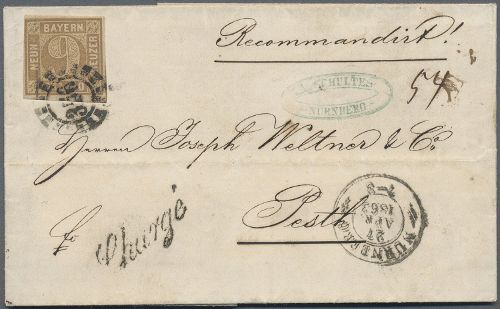 BAYERN
NEUN
9
KREUZER
Recommandirt!
SCHULTE
NÜRNBERG
54
Herrn Joseph Weltner & Co.
Pesth
fr
Chargé
NÜRNBERG
27
APR
1863